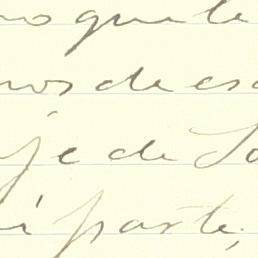 no que le
nos de es
je de Sa
i parte,